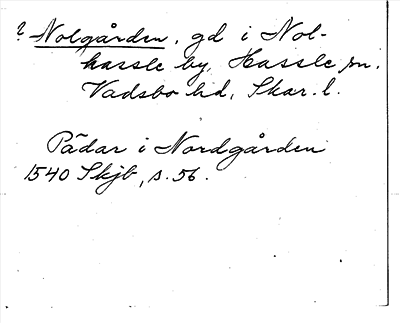 ? Nolgården, gd i Nol-
hassle by, Hassle sn.
Vadsbo hd, Skar. l.
Pädar i Nordgården
1540 Skjb, s. 56.